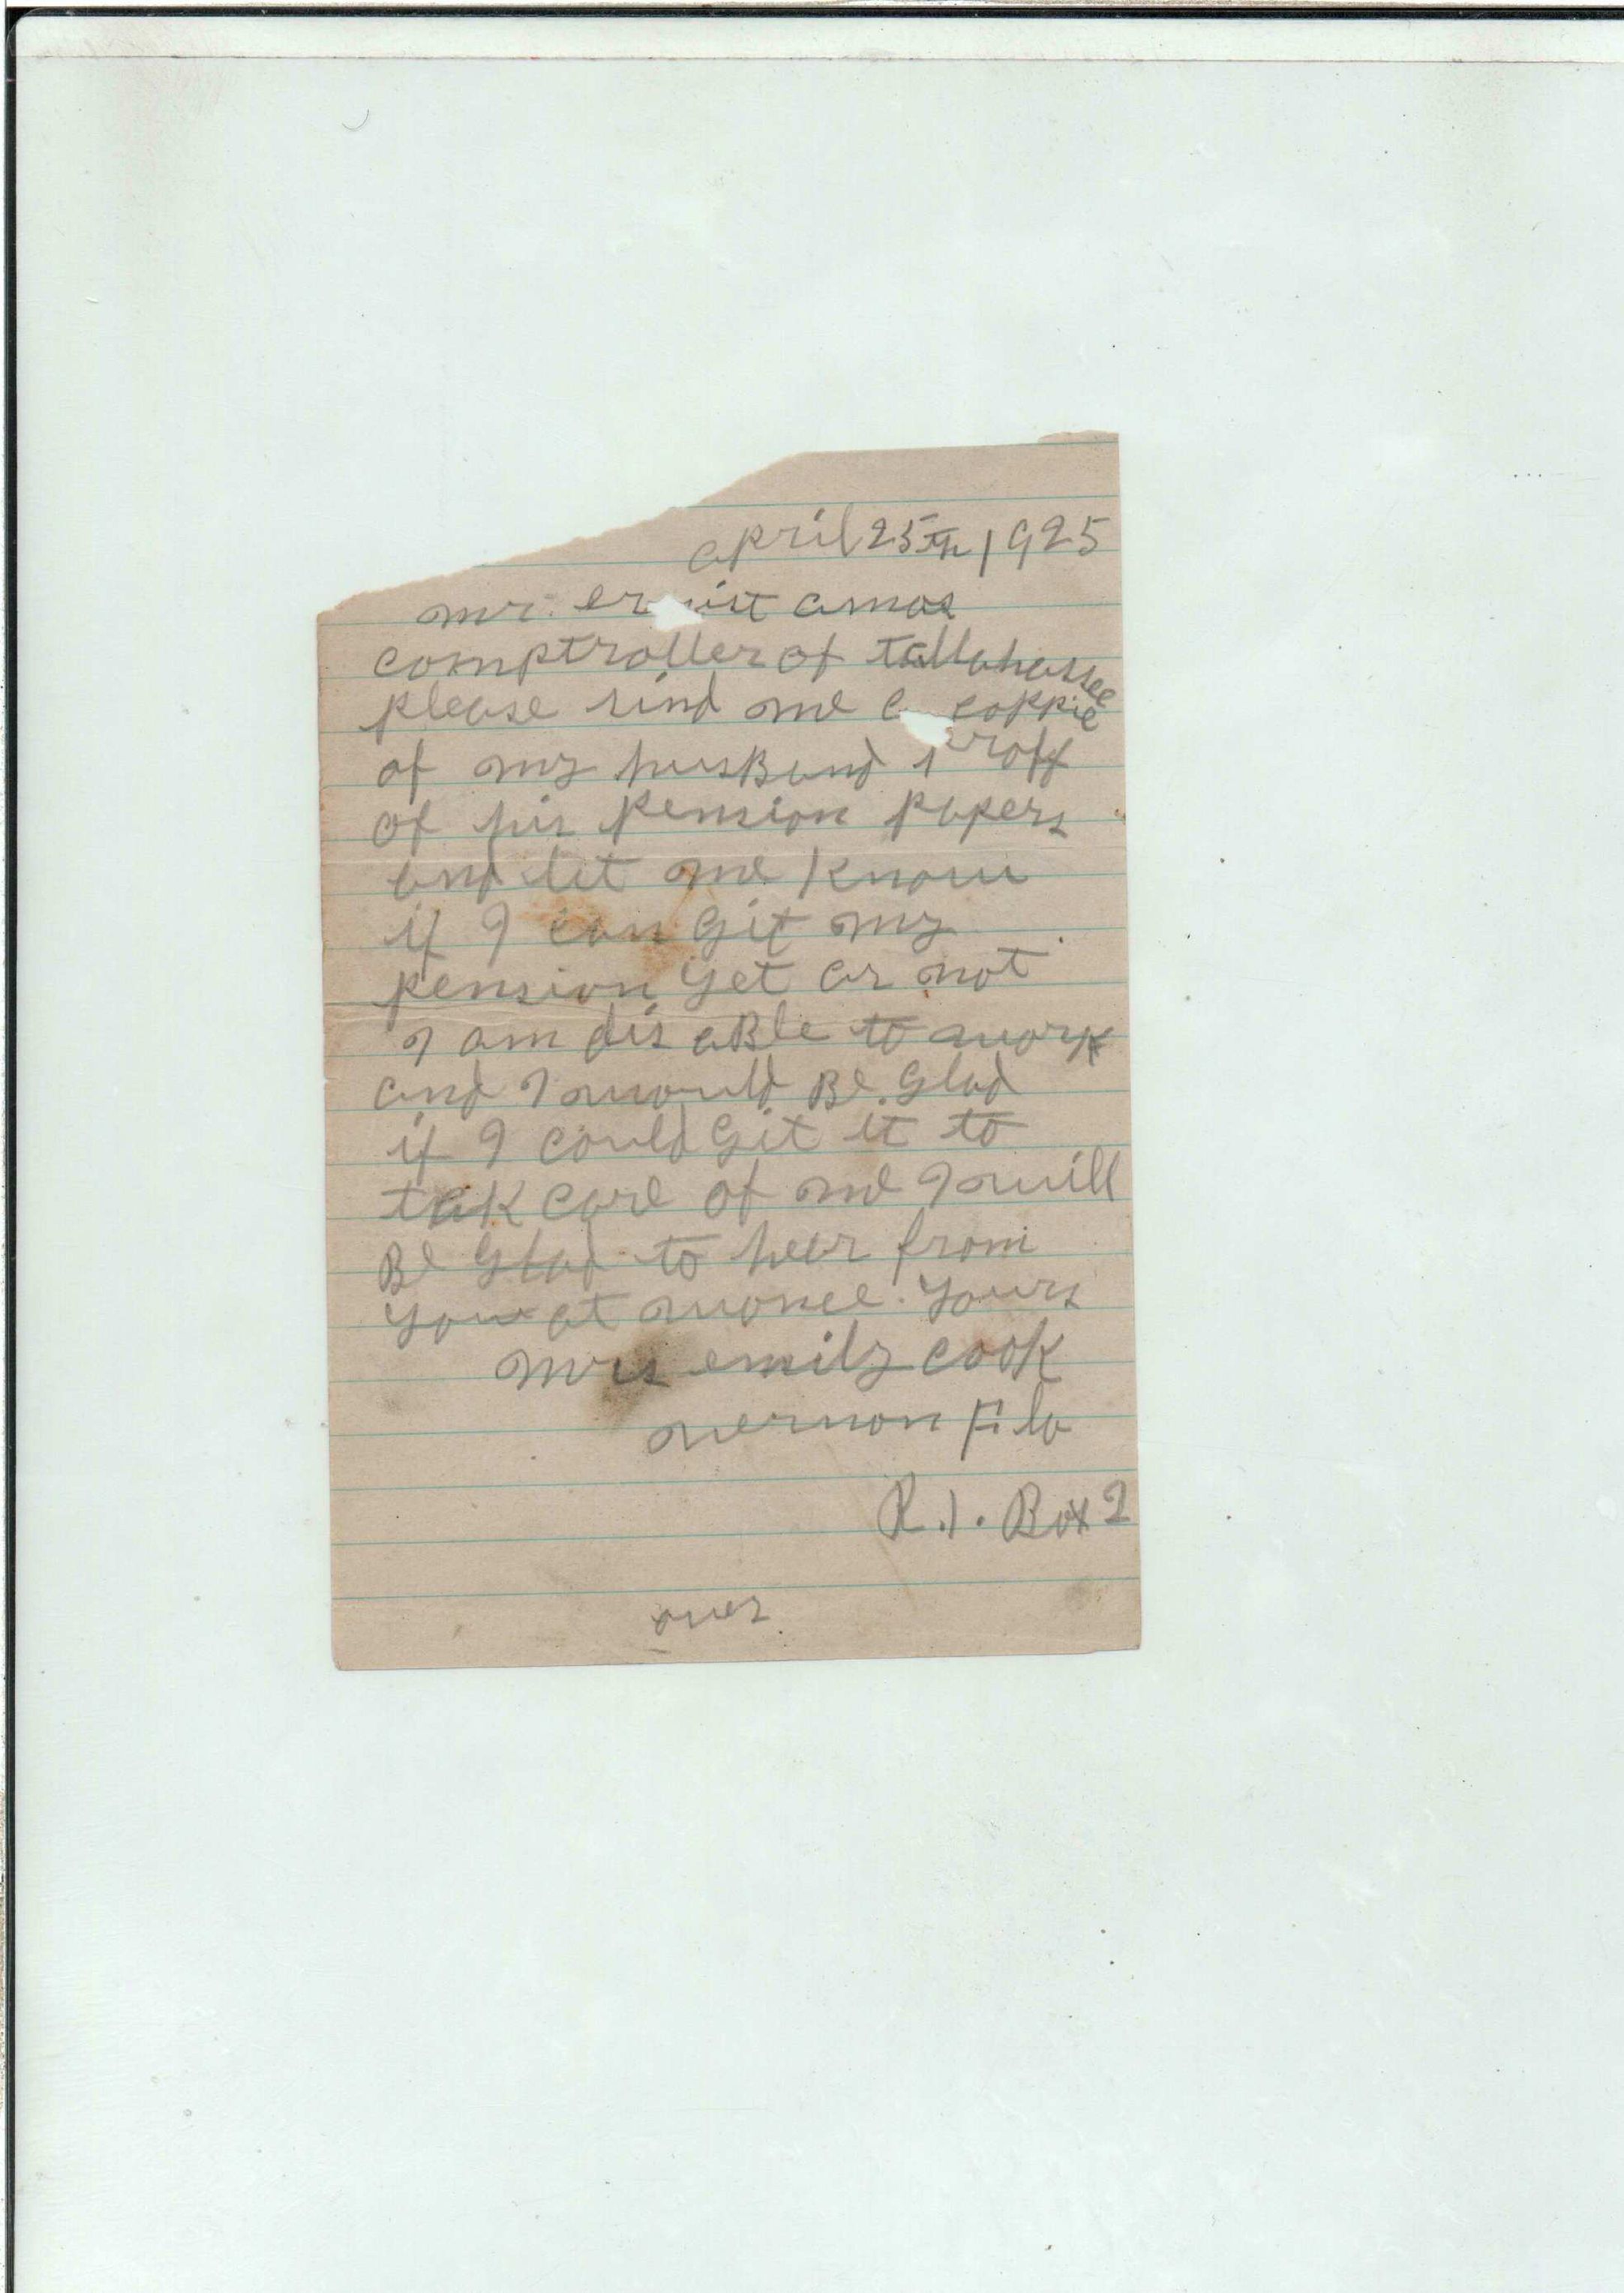 april 25th 1925
mr. amos
comptroller of tallahassee
please sind me a coppie
of my husBand proff
of his pension papers
and let me know
if I can git my
pension yet or not
I am dis aBle to work
and I would Be glad
if I could git it to
tak care of me I will
Be glad to hear from
you at wonce. yours
mrs emily cook
vernon Fla
R.1. Box 2
over